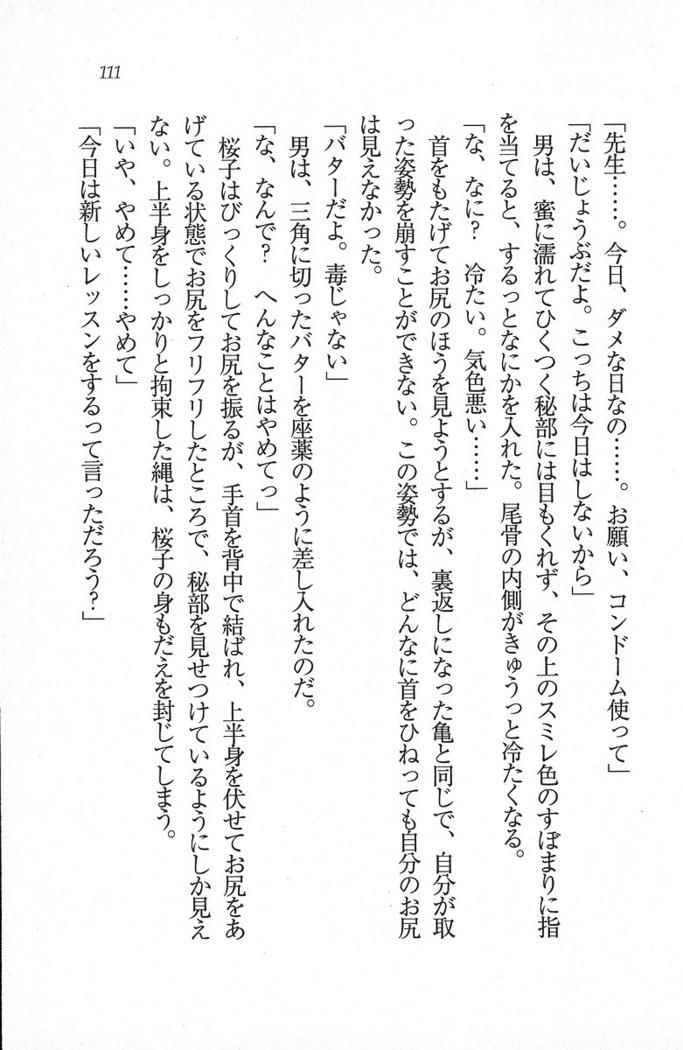 111
「先生……。今日、ダメな日なの……。お願い、コンドーム使って」
「だいじょうぶだよ。こっちは今日はしないから」
男は、蜜に濡れてひくつく秘部には目もくれず、その上のスミレ色のすぼまりに指
を当てると、するっとなにかを入れた。尾骨の内側がきゅうっと冷たくなる。
「な、なに？　冷たい。気色悪い……」
首をもたげてお尻のほうを見ようとするが、裏返しになった亀と同じで、自分が取
った姿勢を崩すことができない。この姿勢では、どんなに首をひねっても自分のお尻
は見えなかった。
「バターだよ。毒じゃない」
男は、三角に切ったバターを座薬のように差し入れたのだ。
「な、なんで？　へんなことはやめてっ」
桜子はびっくりしてお尻を振るが、手首を背中で結ばれ、上半身を伏せてお尻をあ
げている状態でお尻をフリフリしたところで、秘部を見せつけているようにしか見え
ない。上半身をしっかりと拘束した縄は、桜子の身もだえを封じてしまう。
「いや、やめて……やめて」
「今日は新しいレッスンをするって言っただろう？」